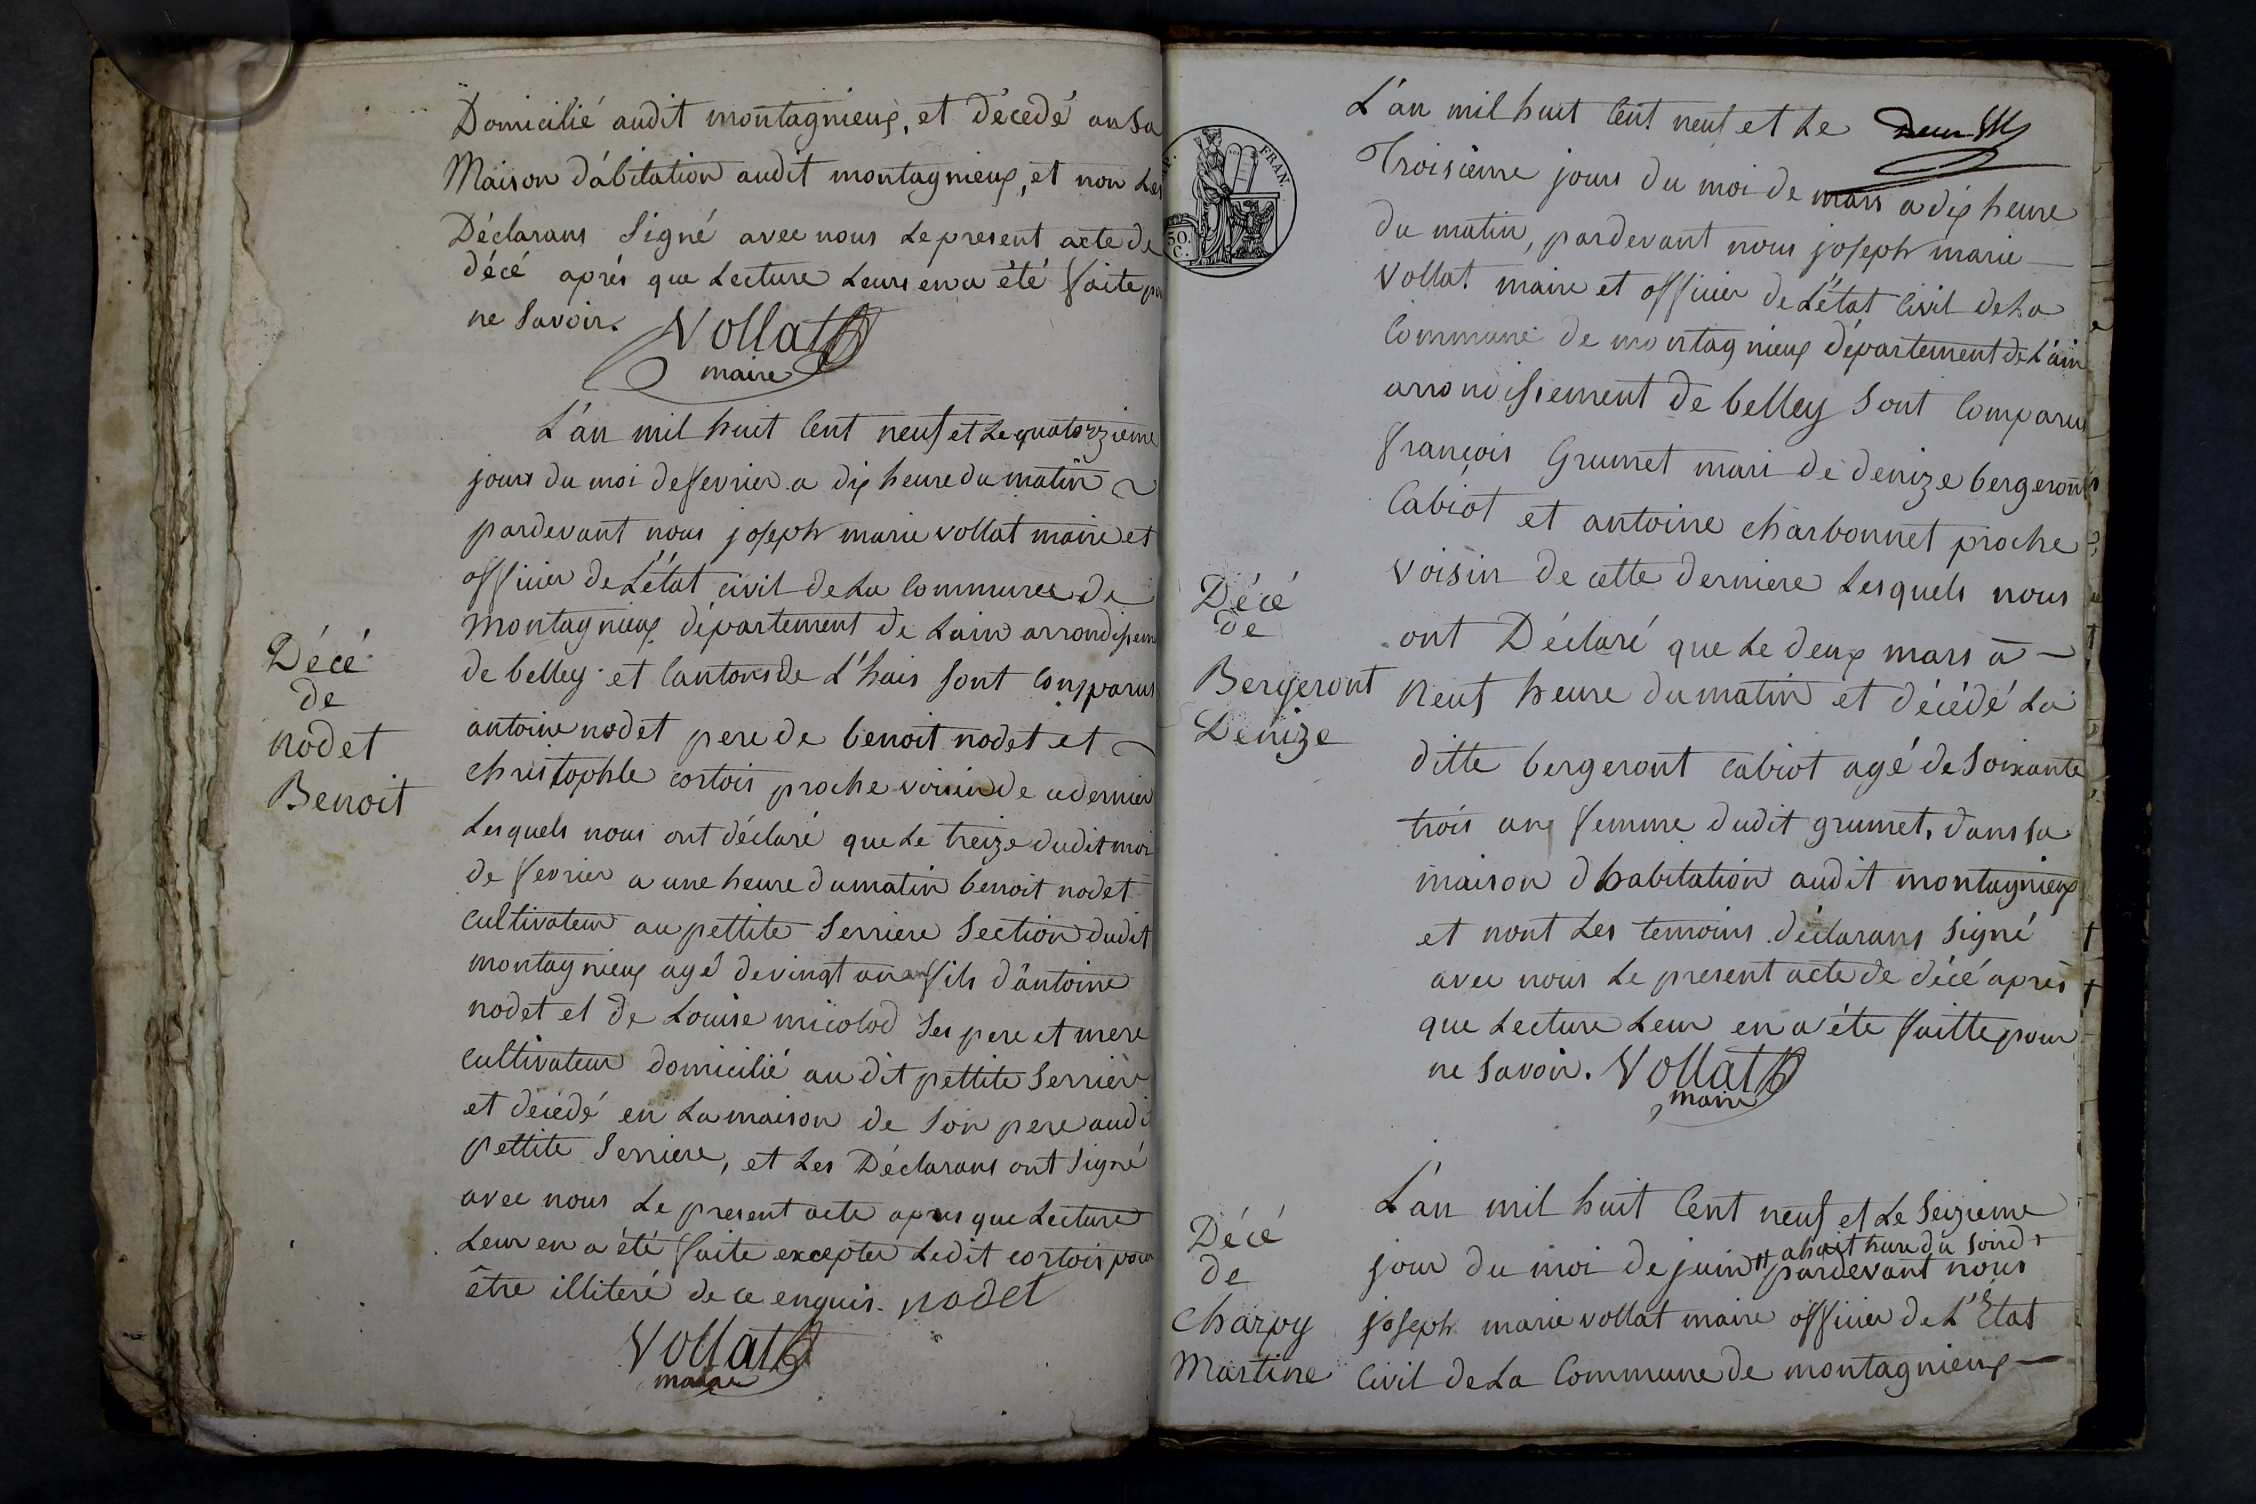 Domicilié audit montagnieux, et décédé en sa
Maison d'abitation audit montagnieux, et non Les
Déclarans Signé avec nous Le present acte de
décé aprés que Lecture Leurs en a été faite pr
ne Savoir. Vollat
maire
L'an mil huit Cent neuf et Le quatorzieme
jours du moi de fevrier a dix heure du matin
pardevant nous joseph marie vollat maire et
officier de L'état civil de La Commune de
montagnieux département de Lain arrondissem
de belley et Cantons de L'huis sont Comparus
antoine nodet pere de benoit nodet et
christophle cortois proche voisin de ce dernier
Lesquels nous ont déclaré que Le treize dudit moi
de fevrier a une heure du matin benoit nodet
Décé
de
nodet
Benoit
cultivateur au pettite Serriere Section dudit
montagnieux agé de vingt ans fils d'antoine
nodet et de Louise micolod Ses pere et mere
cultivateur domicilié au dit pettite Serrier
et décédé en La maison de Son pere audi
pettite Serriere, et Les Déclarans ont Signé
avec nous Le present acte apres que Lecture
Leur en a été faite excepter Ledit cortois pour
être illiteré de ce enquis. nodet
Vollat
maire
FRAN.
50.
C.
L'an mil huit Cent neuf et Le
Troisieme jours du moi de mars a dix heure
du matin, pardevant nous joseph marie
Vollat maire et officier de L'état Civil de La
Commune de montagnieux département de L'ain
arrondissement de belley Sont Comparus
françois Grumet mari de denize bergeront
Cabiot et antoine charbonnet proche
voisin de cette derniere Lesquels nous
ont Déclaré que Le deux mars à
Neuf heure du matin et décédé La
Décé
de
Bergeront
Denize
ditte bergeront cabiot agé de Soixante
trois ans femme dudit grumet, dans sa
maison d'habitation audit montagnieux
et nont Les temoins déclarans Signé
avec nous Le present acte de décé aprés
que Lecture Leur en a été faitte pour
ne Savoir. Vollat
maire
L'an mil huit Cent neuf et Le Seizieme
a huit heure du soir
jour du moi de juin pardevant nous
joseph marie vollat maire officier de L'Etat
Civil de La Commune de montagnieux
Décé
de
Charpy
Martine